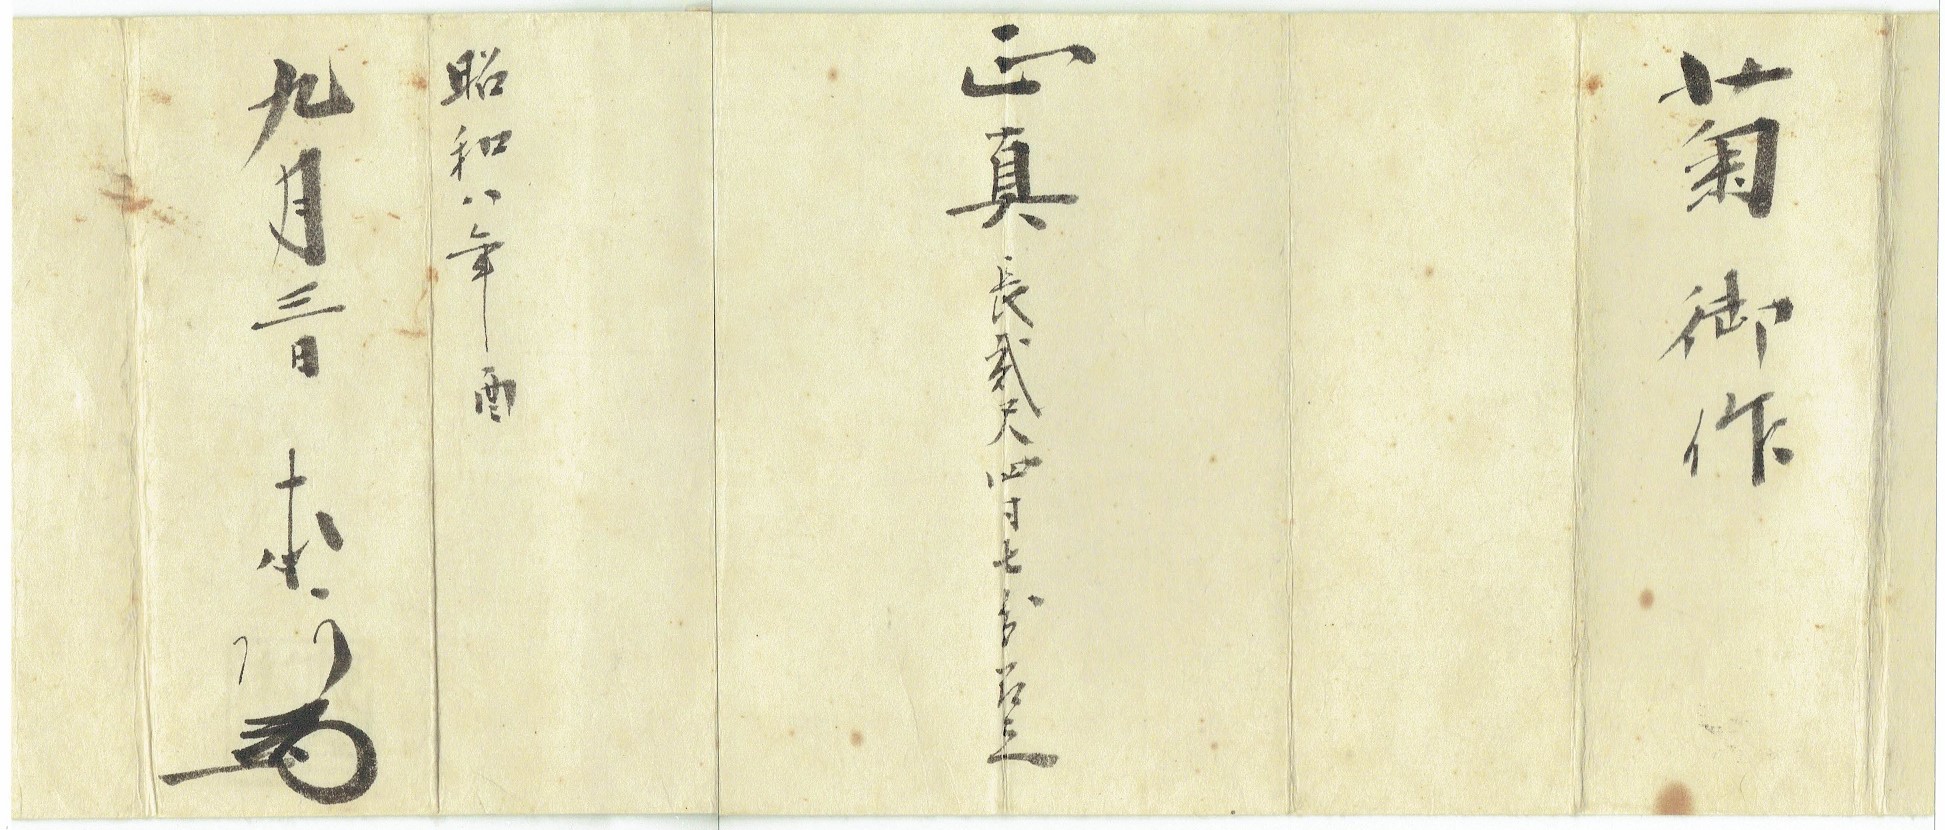 菊御作
正真 長貳尺四寸七分有之
昭和八年酉
九月三日 本阿